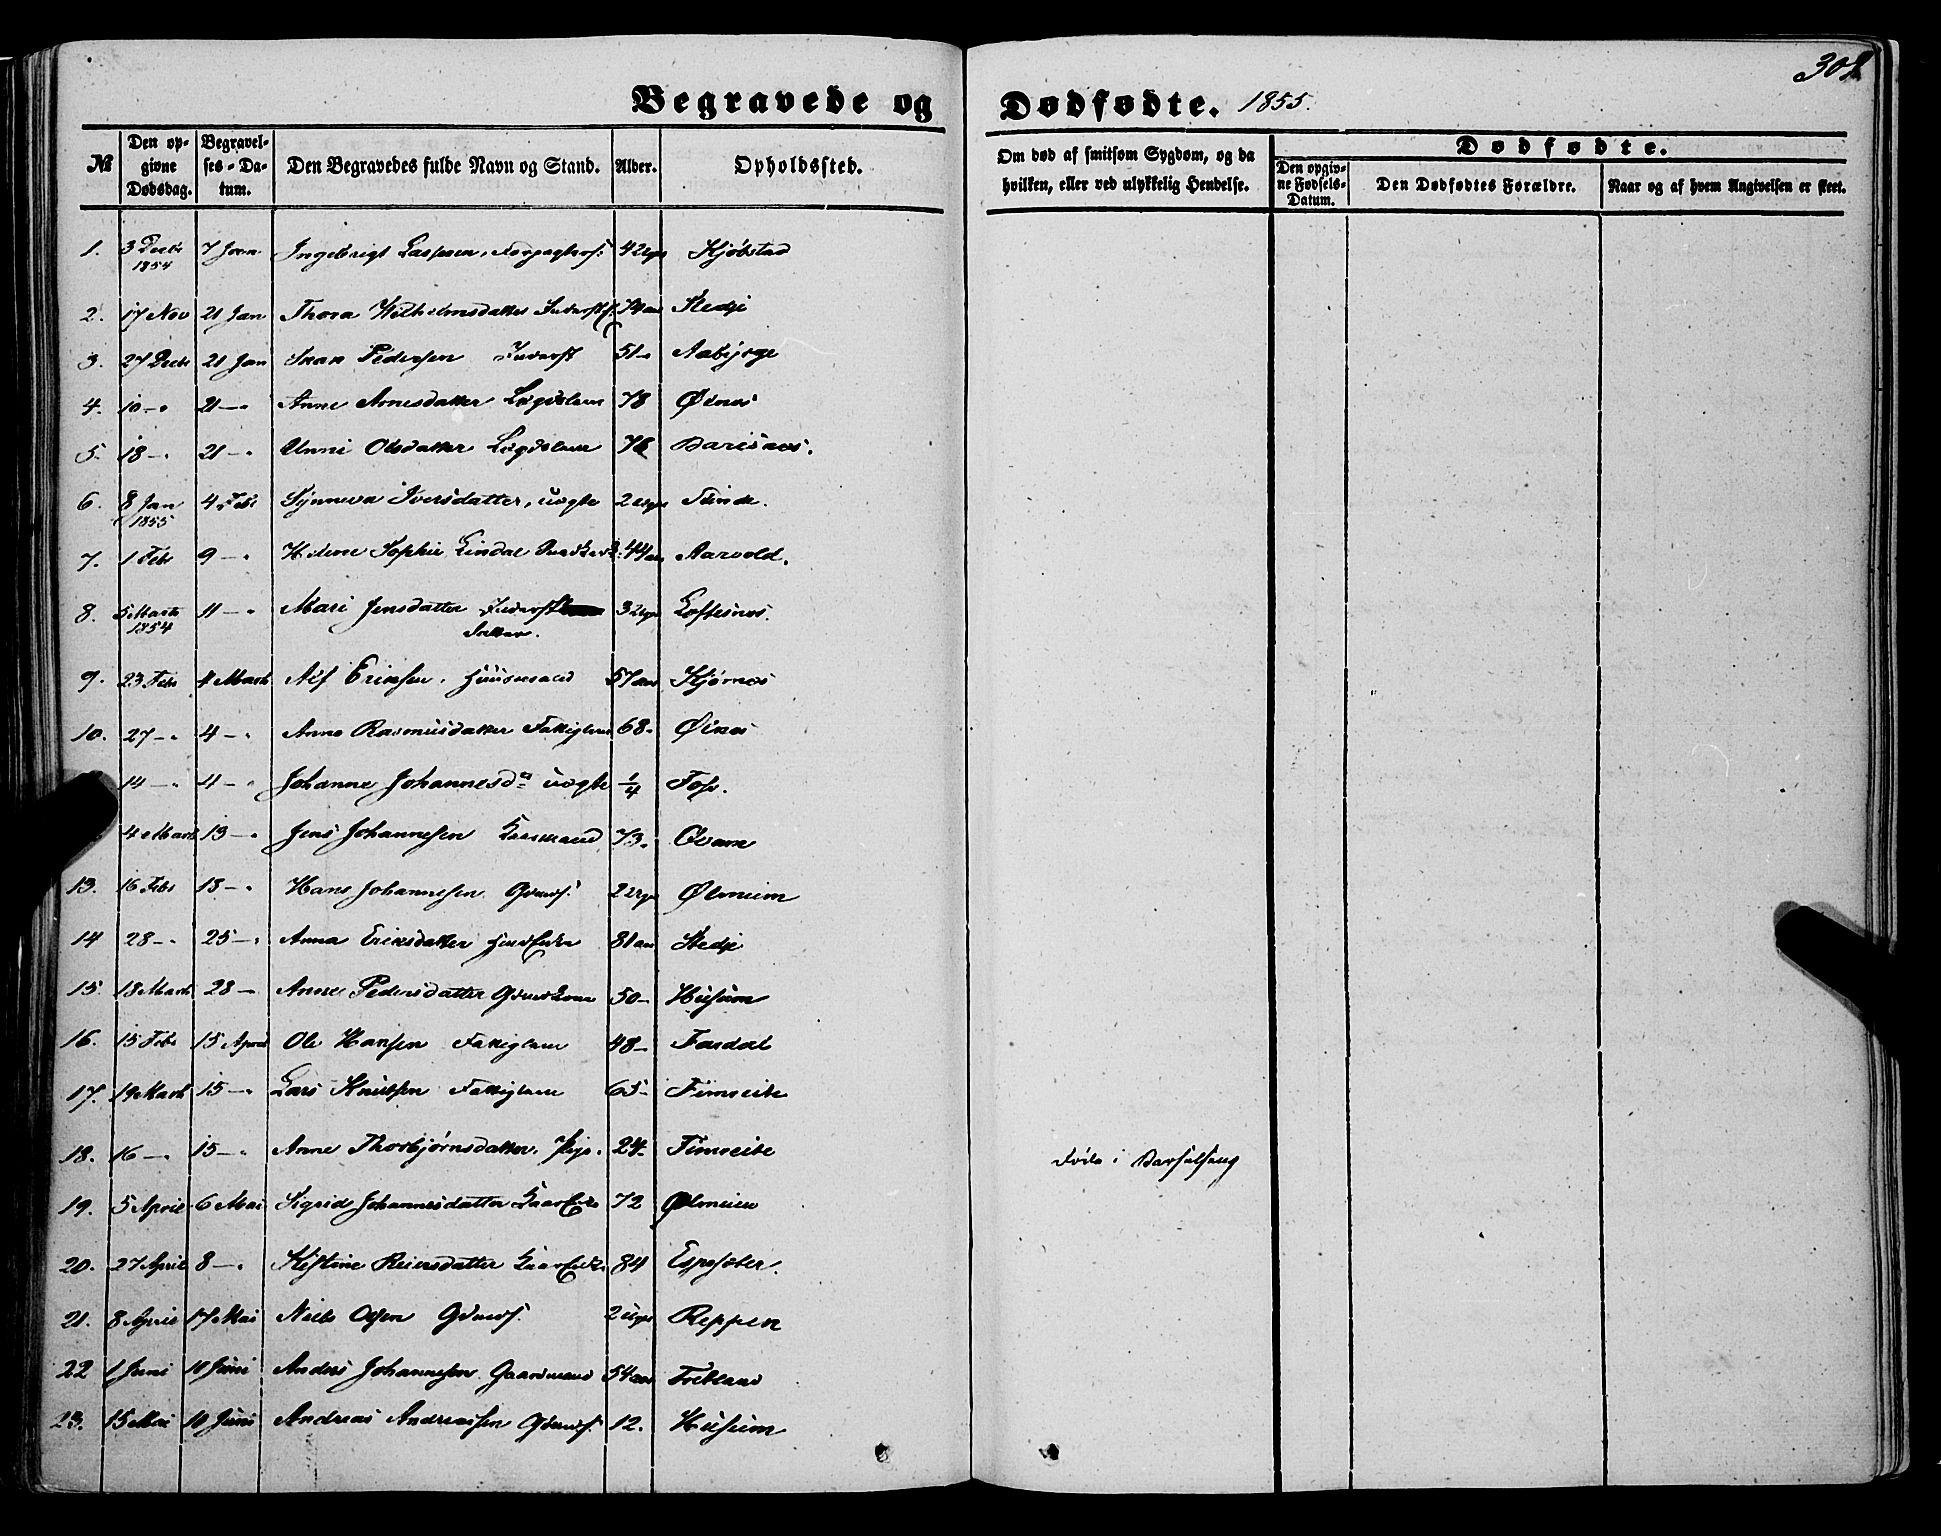 308
Begravede og Dødfødte. 1855.
№ Den opgivne Dødsdag. Begravelses-Datum. Den Begravedes fulde Navn og Stand. Alder. Opholdssted. Om død af smitsom Sygdom, og da hvilken, eller ved ulykkelig Hendelse. Dødfødte. Den opgivne Fødsels-Datum. Den Dødfødtes Forældre. Naar og af hvem Angivelsen er skeet.
1. 3 Decbr 1854 7 Jan Ingebrigt 42 Kjøbstad
2. 17 Nov 21 Jan Thora Wilhelmsdatter Stedje
3. 27 Decbr 21 Jan Pedersen Inderst 51 Aabjørge
4. 10 - 21 - Anne Arnesdatter Lægdslem 78 Ølnes
5. 18 - 21 - Unni Olsdatter Lægdslem 76 Barsnes.
6. 8 Jan 1855 4 Febr Synneva Iversdatter, uægte 2 Slinde.
7. 1 Febr 9 - Helene Sophie Lindal 44 Aarvold.
8. 5 Marts 1854 11 - Mari Jensdatter Inderst datter. 32 Loftesnes.
9. 23 Febr 4 Marts Alf Eriksen. Huusmand 57 Kjørnes
10. 27 - 4 - Anna Rasmusdatter Fattiglem 68 Ølnes
14 - 4 - Johanne Johannesdr uægte 1/4 Foss.
4 Marts 13 - Jens Johannesen Kaarmand 73 Qvam
13. 16 Febr 13 - Hans Johannesen Gdmds. 2 Ølmeim
14 28 - 25 - Anna Eriksdatter 81 Stedje
15. 18 Marts 28 - Anne Pedersdatter Gdmdkone 50 Husum
16. 15 Febr 15 April Ole Hansen Fattiglem 48 Fardal
17. 19 Marts 15 - Lars Knudsen Fattiglem 65 Fimreite
18. 16 - 15 - Anne Thorbjørnsdatter. Pige. 24 Fimreite Døde i Barselseng
19. 5 April 6 Mai Sigrid Johannesdatter Kaarenke 72 Ølmeim
20. 27 April 8 - Kistine Reiersdatter Kaarenke 84 Espesæter.
21. 8 April 17 Mai Niels Olsen Gdmds. 2 Reppen
22 1 Juni 10 Juni Anders Johannesen Gaardmand 54 Fretland
23. 15 Mai 10 Juni Andreas Andreassen Gdmds. 12. Husum